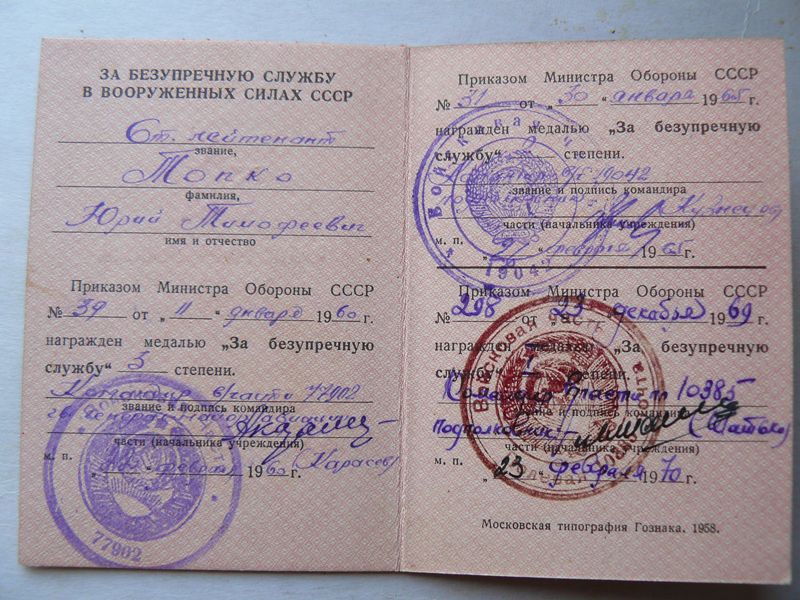 ЗА БЕЗУПРЕЧНУЮ СЛУЖБУ
В ВООРУЖЕННЫХ СИЛАХ СССР
Ст. лейтенант
звание,
Топко
фамилия,
Юрий Тимофеевич
имя и отчество
Приказом Министра Обороны СССР
№ 39 от „11“ января 1960 г.
награжден медалью „За безупречную
службу“ 3 степени.
Командир в/части 77902
звание и подпись командира
части (начальника учреждения)
м. п. февраля 1960 (Карасев)
77902
Приказом Министра Обороны СССР
№ 31 от „30“ января 1965 г.
награжден медалью „За безупречную
службу“ степени.
19042
звание и подпись командира
части (начальника учреждения)
м. п. февраля 1965 г.
19042
Приказом Министра Обороны СССР
№ 298 от 23 декабря 1969 г.
награжден медалью „За безупречную
службу“ степени.
Командир 10385
звание и подпись командира
подполковник
части (начальника учреждения)
м. п. „23“ февраля 1970 г.
Московская типография Гознака. 1958.